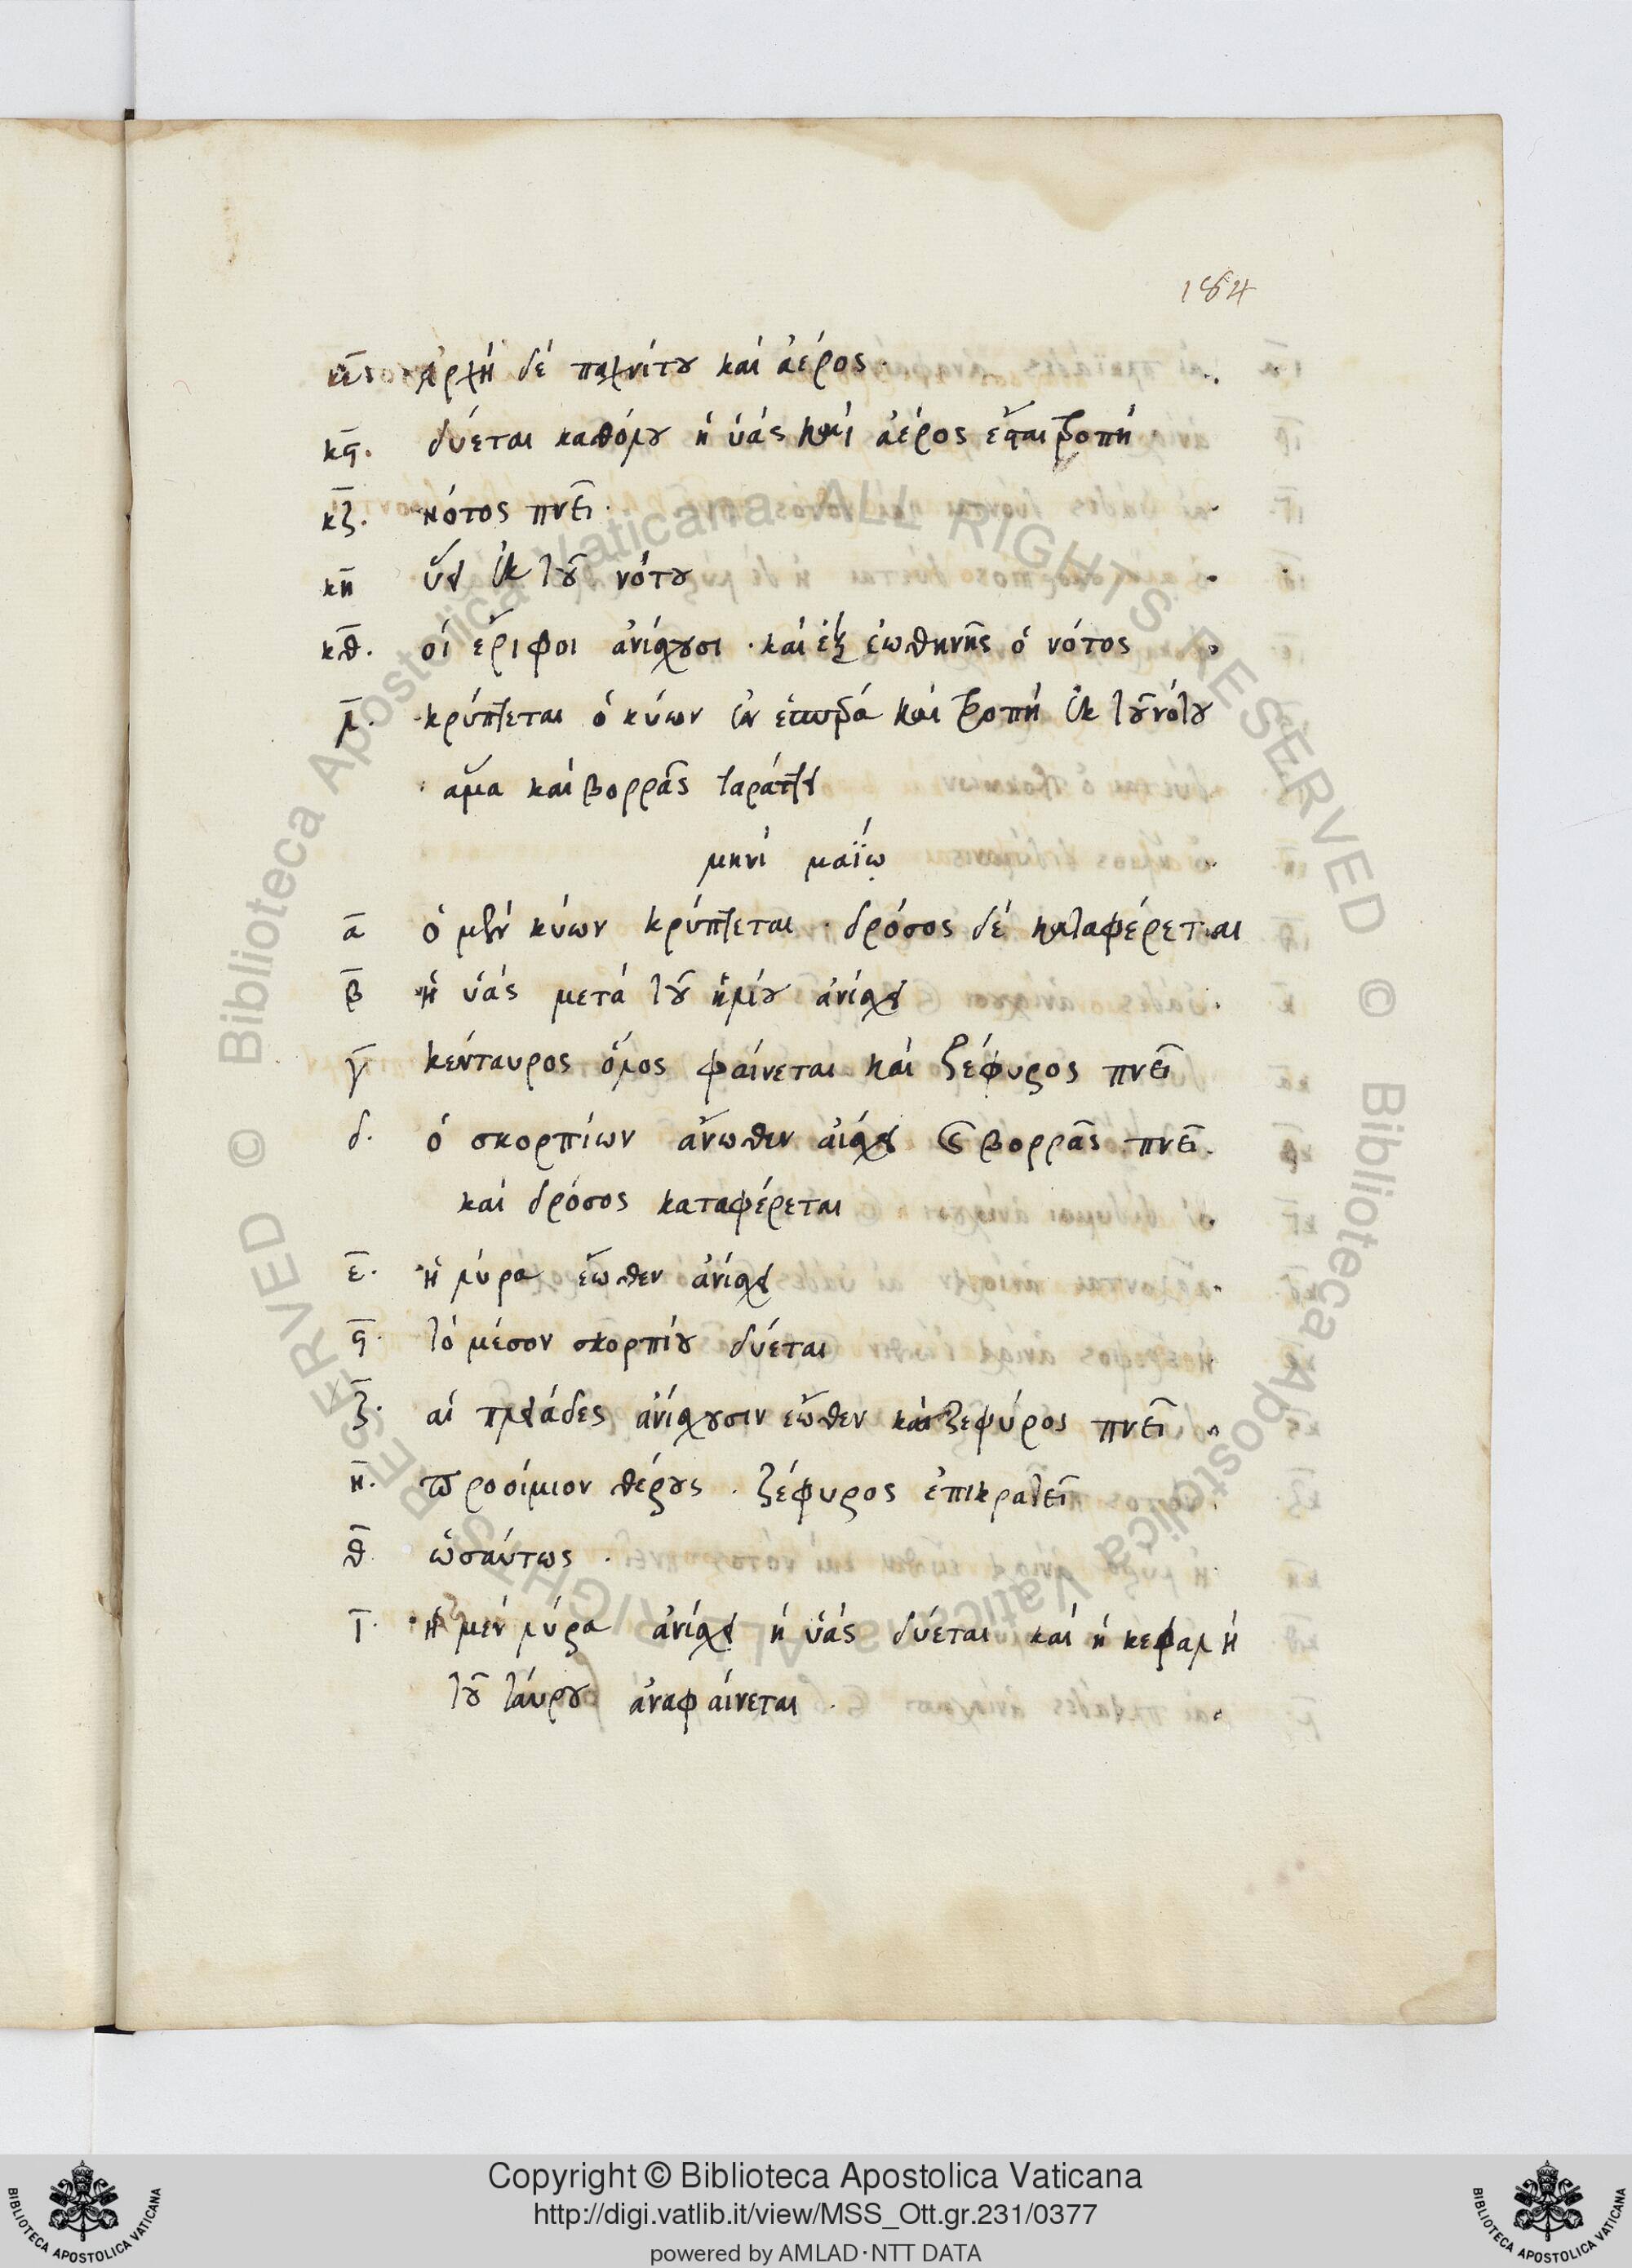 184
κε ἀρχὴ δὲ παχνίτου καὶ ἀέρος.
κϛ. δύεται καθόλου ἡ ὑάς καὶ ἀέρος ἔσται τροπή
κζ. νότος πνεῖ.
κη ὕει ἐκ τοῦ νότου
κθ. οἱ ἔριφοι ἀνίσχουσι. καὶ ἐξ ἑωθηνῆς ὁ νότος
λ. κρύπτεται ὁ κύων ἐν ἑσπέρα καὶ τροπὴ ἐκ τοῦ νότου
ἅμα καὶ βορρᾶς ταράττει
μηνὶ μαΐῳ
α ὁ μὲν κύων κρύπτεται. δρόσος δὲ καταφέρεται
β ἡ ὑάς μετὰ τοῦ ἡλίου ἀνίσχει
γ κένταυρος ὅλος φαίνεται καὶ ζέφυρος πνεῖ
δ. ὁ σκορπίων ἄνωθεν ἀίσχει καὶ βορρᾶς πνεῖ.
καὶ δρόσος καταφέρεται
ε. ἡ λύρα ἕωθεν ἀνίσχει
ϛ. τὸ μέσον σκορπίου δύεται
ζ. αἱ πλειάδες ἀνίσχουσιν ἕωθεν καὶ ζεφύρος πνεῖ
η. προοίμιον θέρους. ζέφυρος ἐπικρατεῖ
θ ὡσαύτως.
ι. ἡ μὲν λύρα ἀνίσχει ἡ ὑάς δύεται καὶ ἡ κεφαλὴ
τοῦ ταύρου ἀναφαίνεται.
Copyright © Biblioteca Apostolica Vaticana
http://digi.vatlib.it/view/MSS_Ott.gr.231/0377
powered by AMLAD·NTT DATA
BIBLIOTECA APOSTOLICA VATICANA
BIBLIOTECA APOSTOLICA VATICANA
© Biblioteca Apostolica Vaticana ALL RIGHTS RESERVED © Biblioteca Apostolica Vaticana ALL RIGHTS RESERVED